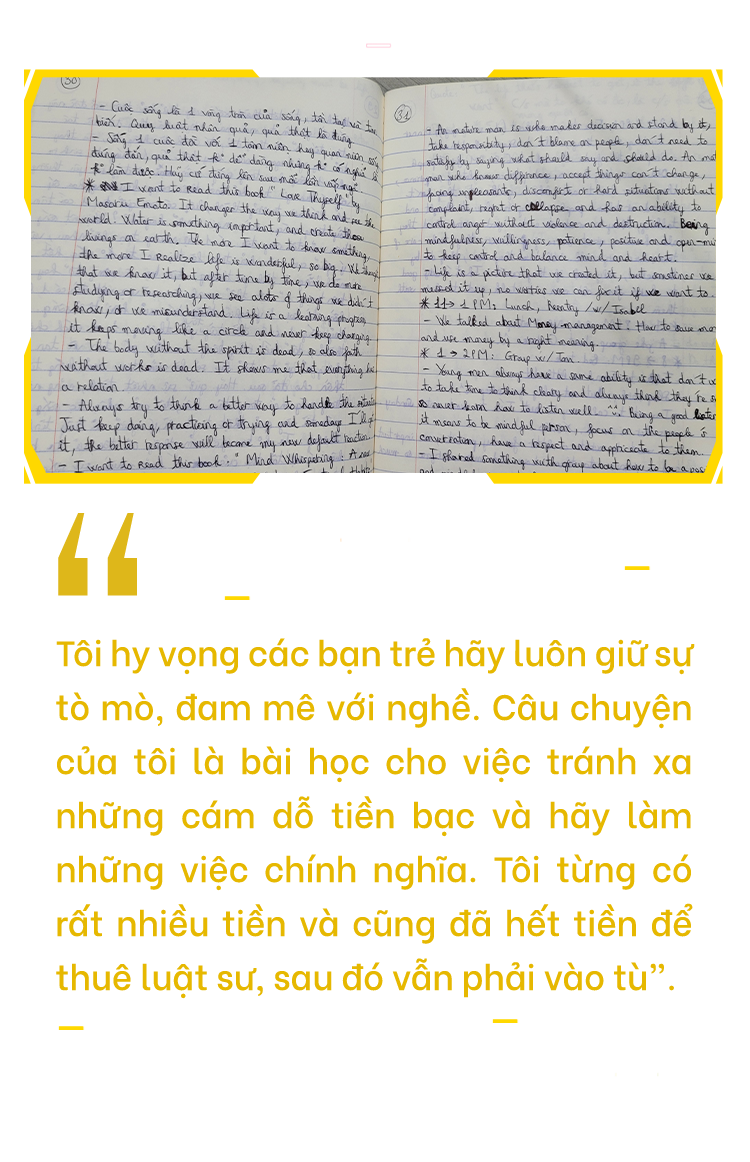 30
- Cuộc sống là 1 vòng tròn của sống, tồn tại và tan
biến. Cùng luật nhân quả, quả thật là đúng
- Sống 1 cuộc đời với 1 tâm niệm hay quan niệm sống
đúng đắn, quả thật k° dễ dàng nhưng k° có nghĩa là
k° làm được. Hãy cứ đứng lên sau mỗi lần vấp ngã
* I want to Read this book "Love Thyself" by
Masaru Emoto. It changer the way we think and see the
world. Water is something important, and create those
livings on earth. The more I want to know something,
the more I Realize life is wonderful, so big. We
that we know it, but after time by time, we do more
studying or researching, we see alots of things we didn't
know, or we misunderstand. Life is a learning progress
it keeps moving like a circle and never keep changing.
- The body without the spirit is dead, so also faith
without works is dead. It shows me that everything has
a relation.
- Always try to think a better way to handle the situation
Just keep doing, practicing or trying and someday I'll
it, the better response will become my new default reaction.
- I want to Read this book: "Mind Whispering: A new
31
- An mature man is who maker decision and stand by it,
take responsibility, don't blame on people, don't need to
satisfy by saying what should say and should do. An
man who knows difference, accept things can't change,
facing unpleasants, discomfort or hard situations without
complaint, regret or collapse and has an ability to
control anger without violence and destruction. Being
mindfulness, willingness, patience, positive and open-
to keep control and balance mind and heart.
- Life is a picture that we created it, but sometimes we
messed it up, no worries we can fix it if we want to.
* 11 → 1 PM: Lunch, Reentry /w/ Isabel
- We talked about Money management. How to save
and use money by a right meaning.
* 1 → 2PM: Group w/ Ian.
- Young men always have a same ability is that don't
to take time to think cleary and always think they're
so never learn how to listen well. Being a good listener
it means to be mindful person, focus on the people's
conversation, have a respect and appriceate to them.
- I shared something with group about how to be a
Tôi hy vọng các bạn trẻ hãy luôn giữ sự
tò mò, đam mê với nghề. Câu chuyện
của tôi là bài học cho việc tránh xa
những cám dỗ tiền bạc và hãy làm
những việc chính nghĩa. Tôi từng có
rất nhiều tiền và cũng đã hết tiền để
thuê luật sư, sau đó vẫn phải vào tù”.